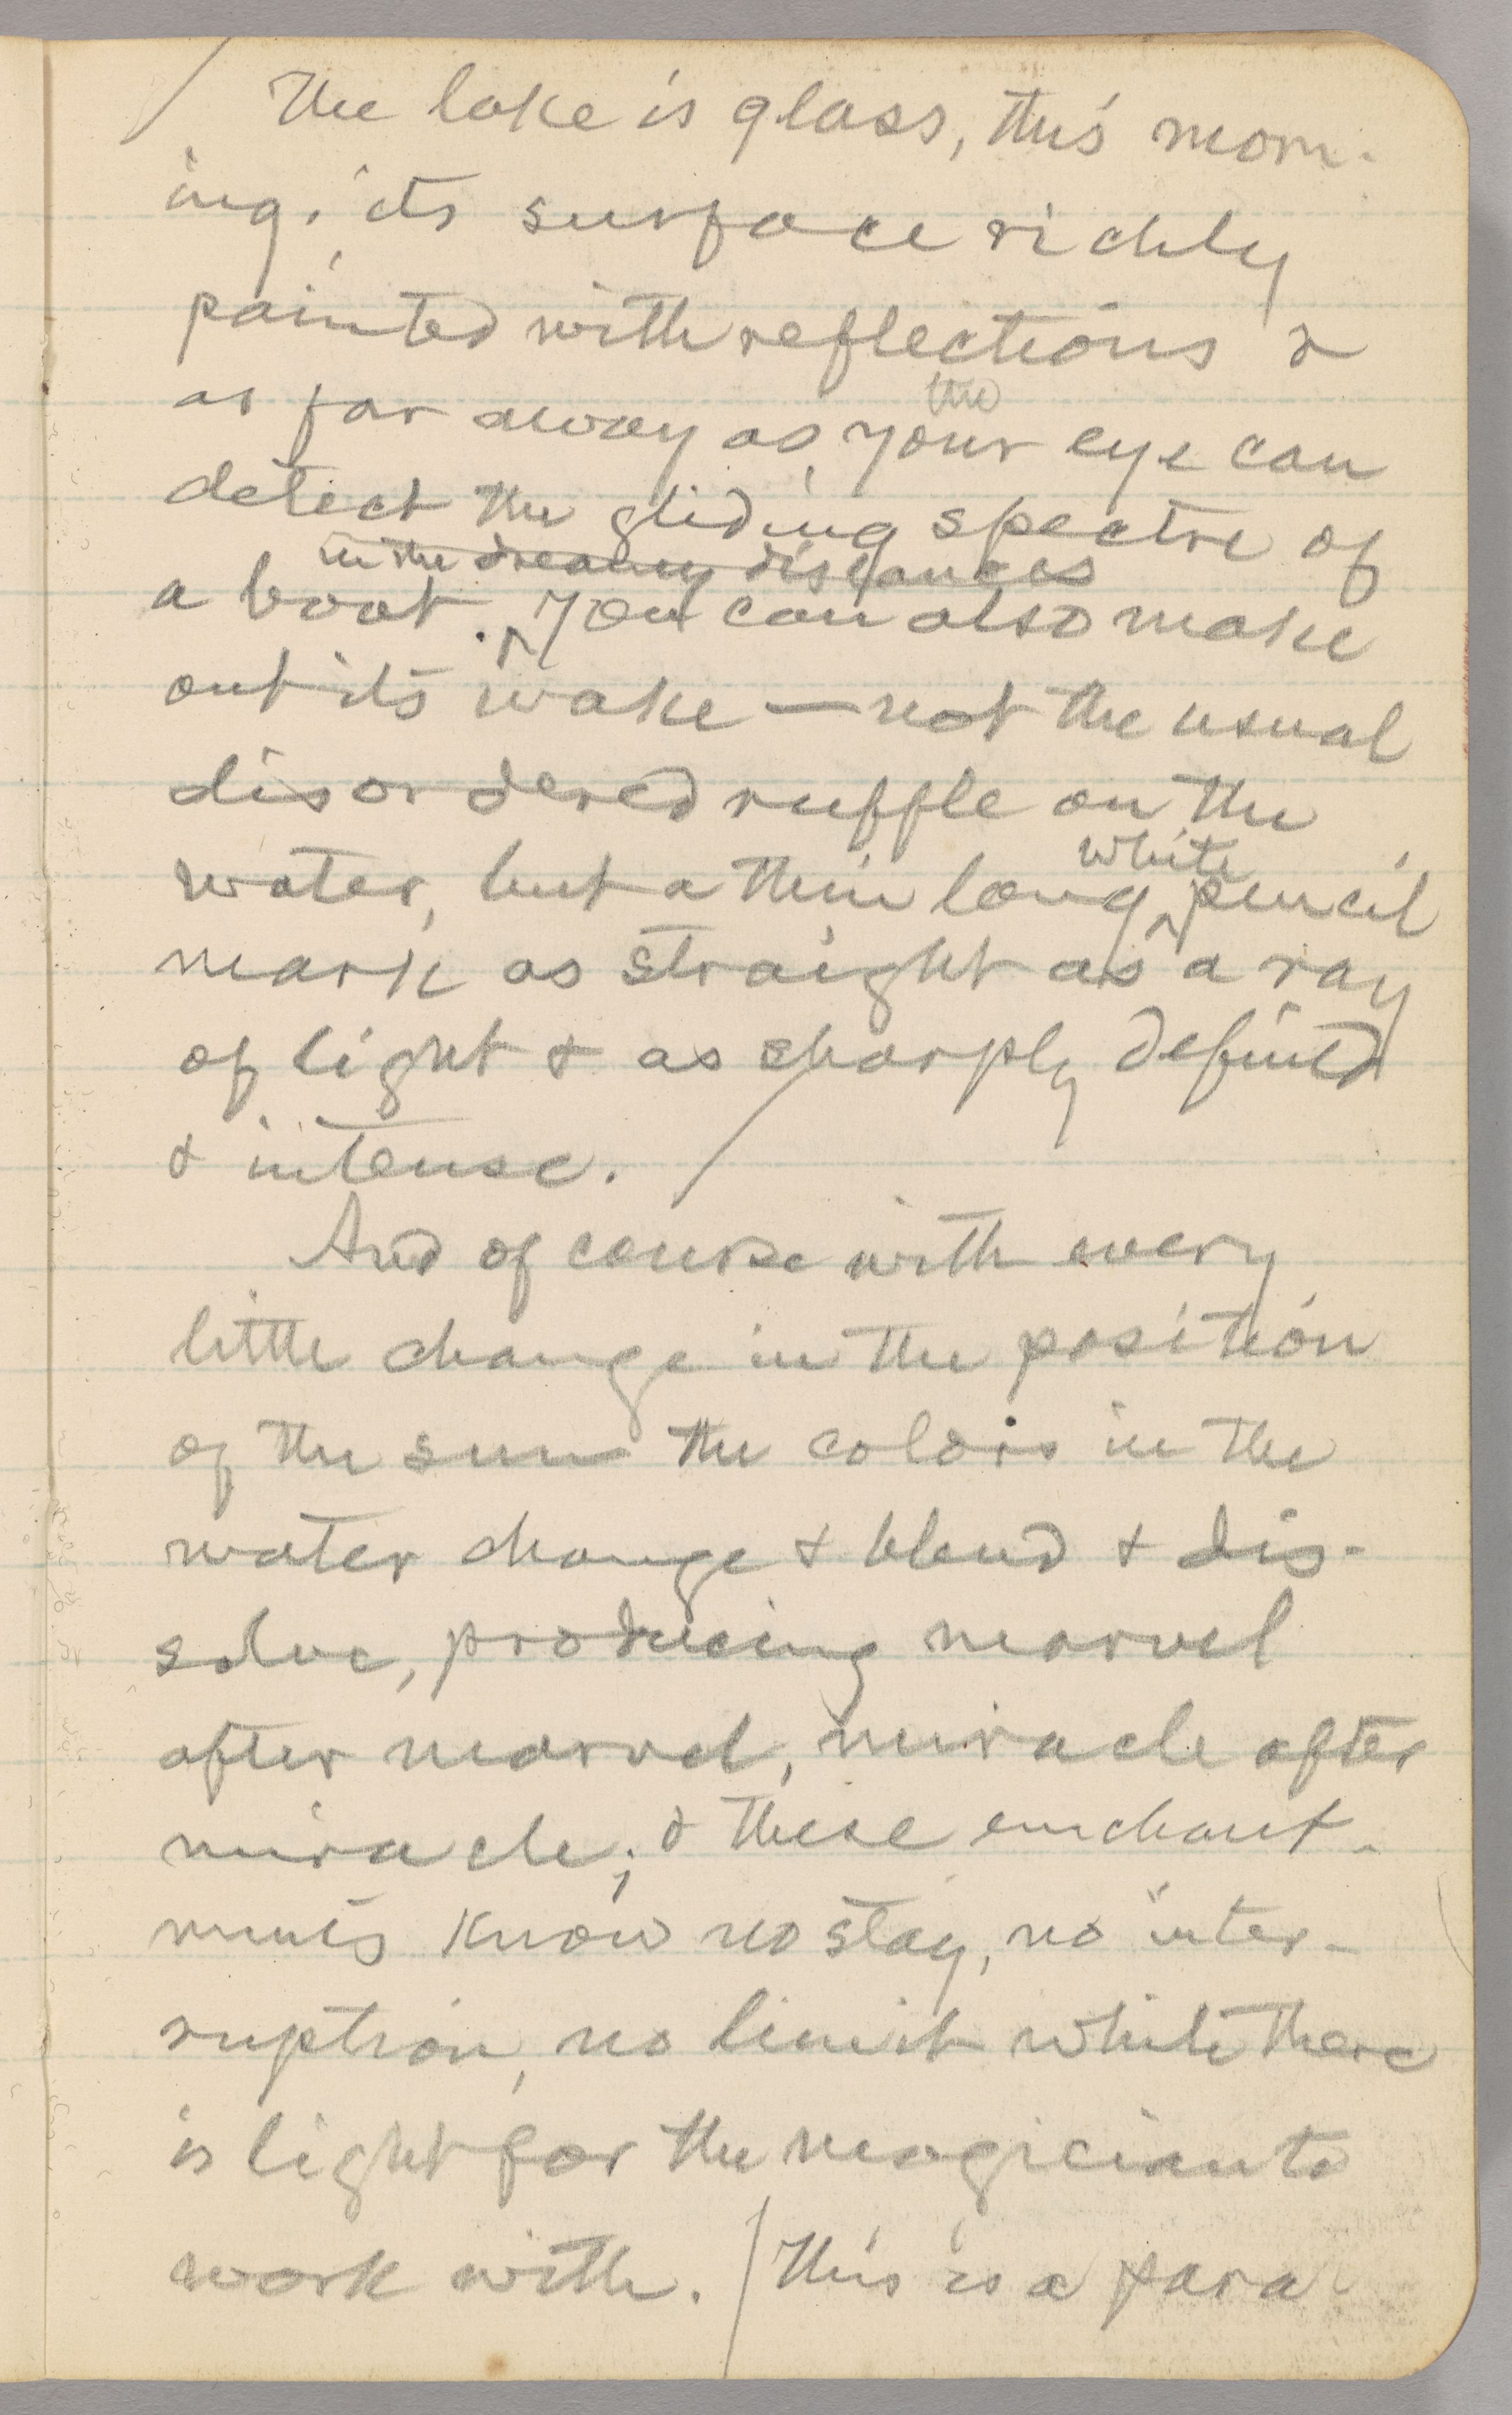 The lake is glass, this morn-
ing, its surface richly
painted with reflections &
the
as far away as your eye can
detect the gliding spectre of
in the dreamy distances
a boat. You can also make
out its wake — not the usual
disordered ruffle on the
white
water, but a thin long pencil
mark as straight as a ray
of light & as sharply defined
& intense.
And of course with every
little change in the position
of the sun the colors in the
water change & blend & dis-
solve, producing marvel
after marvel, miracle after
miracle; & these enchant-
ments know no stay, no inter-
ruption, no limit while there
is light for the magician to
work with. / This is a para